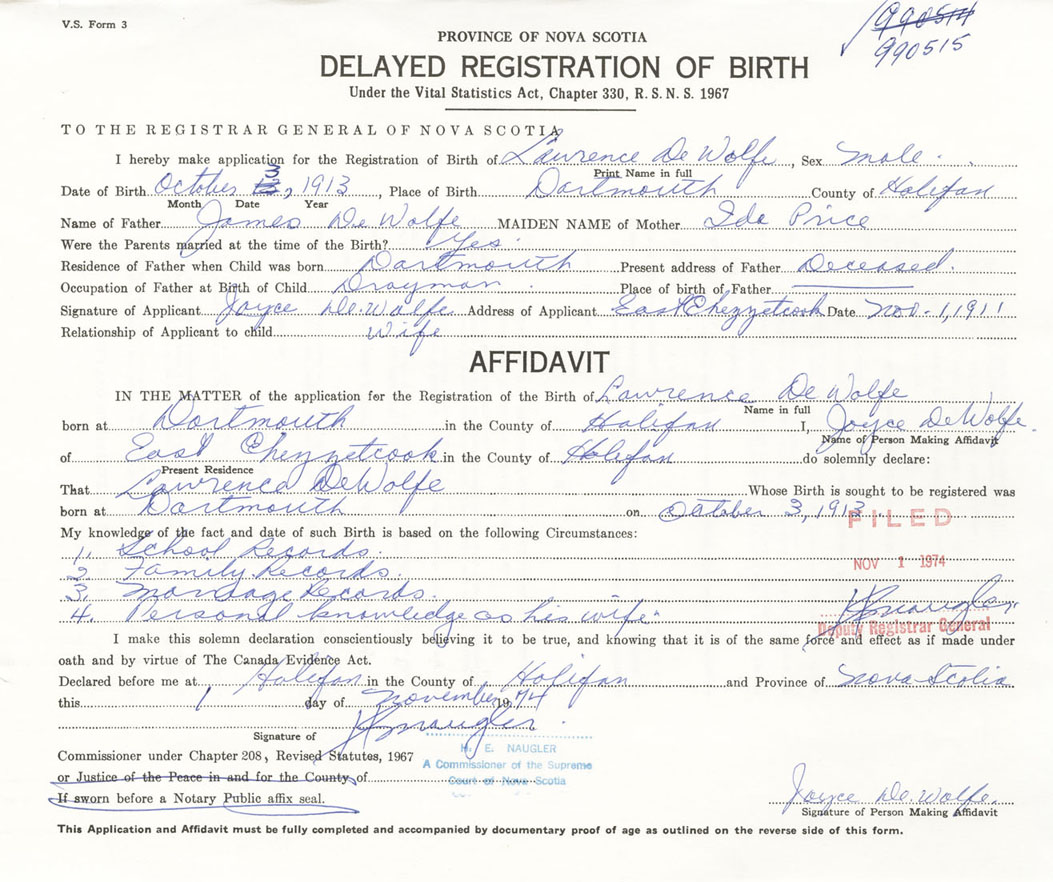 V.S. Form 3
990514
990515
PROVINCE OF NOVA SCOTIA
DELAYED REGISTRATION OF BIRTH
Under the Vital Statistics Act, Chapter 330, R. S. N. S. 1967
TO THE REGISTRAR GENERAL OF NOVA SCOTIA
I hereby make application for the Registration of Birth of Lawrence De Wolfe, Sex male.
Print Name in full
Date of Birth October 3, 1913, Place of Birth Dartmouth County of Halifax
Month Date Year
Name of Father James De Wolfe MAIDEN NAME of Mother Ida Price
Were the Parents married at the time of the Birth? Yes.
Residence of Father when Child was born Dartmouth Present address of Father Deceased.
Occupation of Father at Birth of Child Drayman. Place of birth of Father
Signature of Applicant Joyce De Wolfe Address of Applicant East Chezzetcook Date Nov. 1, 1911
Relationship of Applicant to child Wife
AFFIDAVIT
IN THE MATTER of the application for the Registration of the Birth of Lawrence De Wolfe
Name in full
born at Dartmouth in the County of Halifax I, Joyce DeWolfe.
Name of Person Making Affidavit
of East Chezzetcook in the County of Halifax do solemnly declare:
Present Residence
That Lawrence DeWolfe Whose Birth is sought to be registered was
born at Dartmouth on October 3, 1913.
FILED
My knowledge of the fact and date of such Birth is based on the following Circumstances:
1. School Records.
2 Family Records.
NOV 1 1974
3. Marriage Records.
4. Personal knowledge as his wife.
HEnaugler
Deputy Registrar General
I make this solemn declaration conscientiously believing it to be true, and knowing that it is of the same force and effect as if made under
oath and by virtue of The Canada Evidence Act.
Declared before me at Halifax in the County of Halifax and Province of Nova Scotia
this 1 day of November 1974
HEnaugler.
Signature of
H. E. NAUGLER
Commissioner under Chapter 208, Revised Statutes, 1967
A Commissioner of the Supreme
or Justice of the Peace in and for the County of
Court of Nova Scotia
If sworn before a Notary Public affix seal.
Joyce De Wolfe.
Signature of Person Making Affidavit
This Application and Affidavit must be fully completed and accompanied by documentary proof of age as outlined on the reverse side of this form.